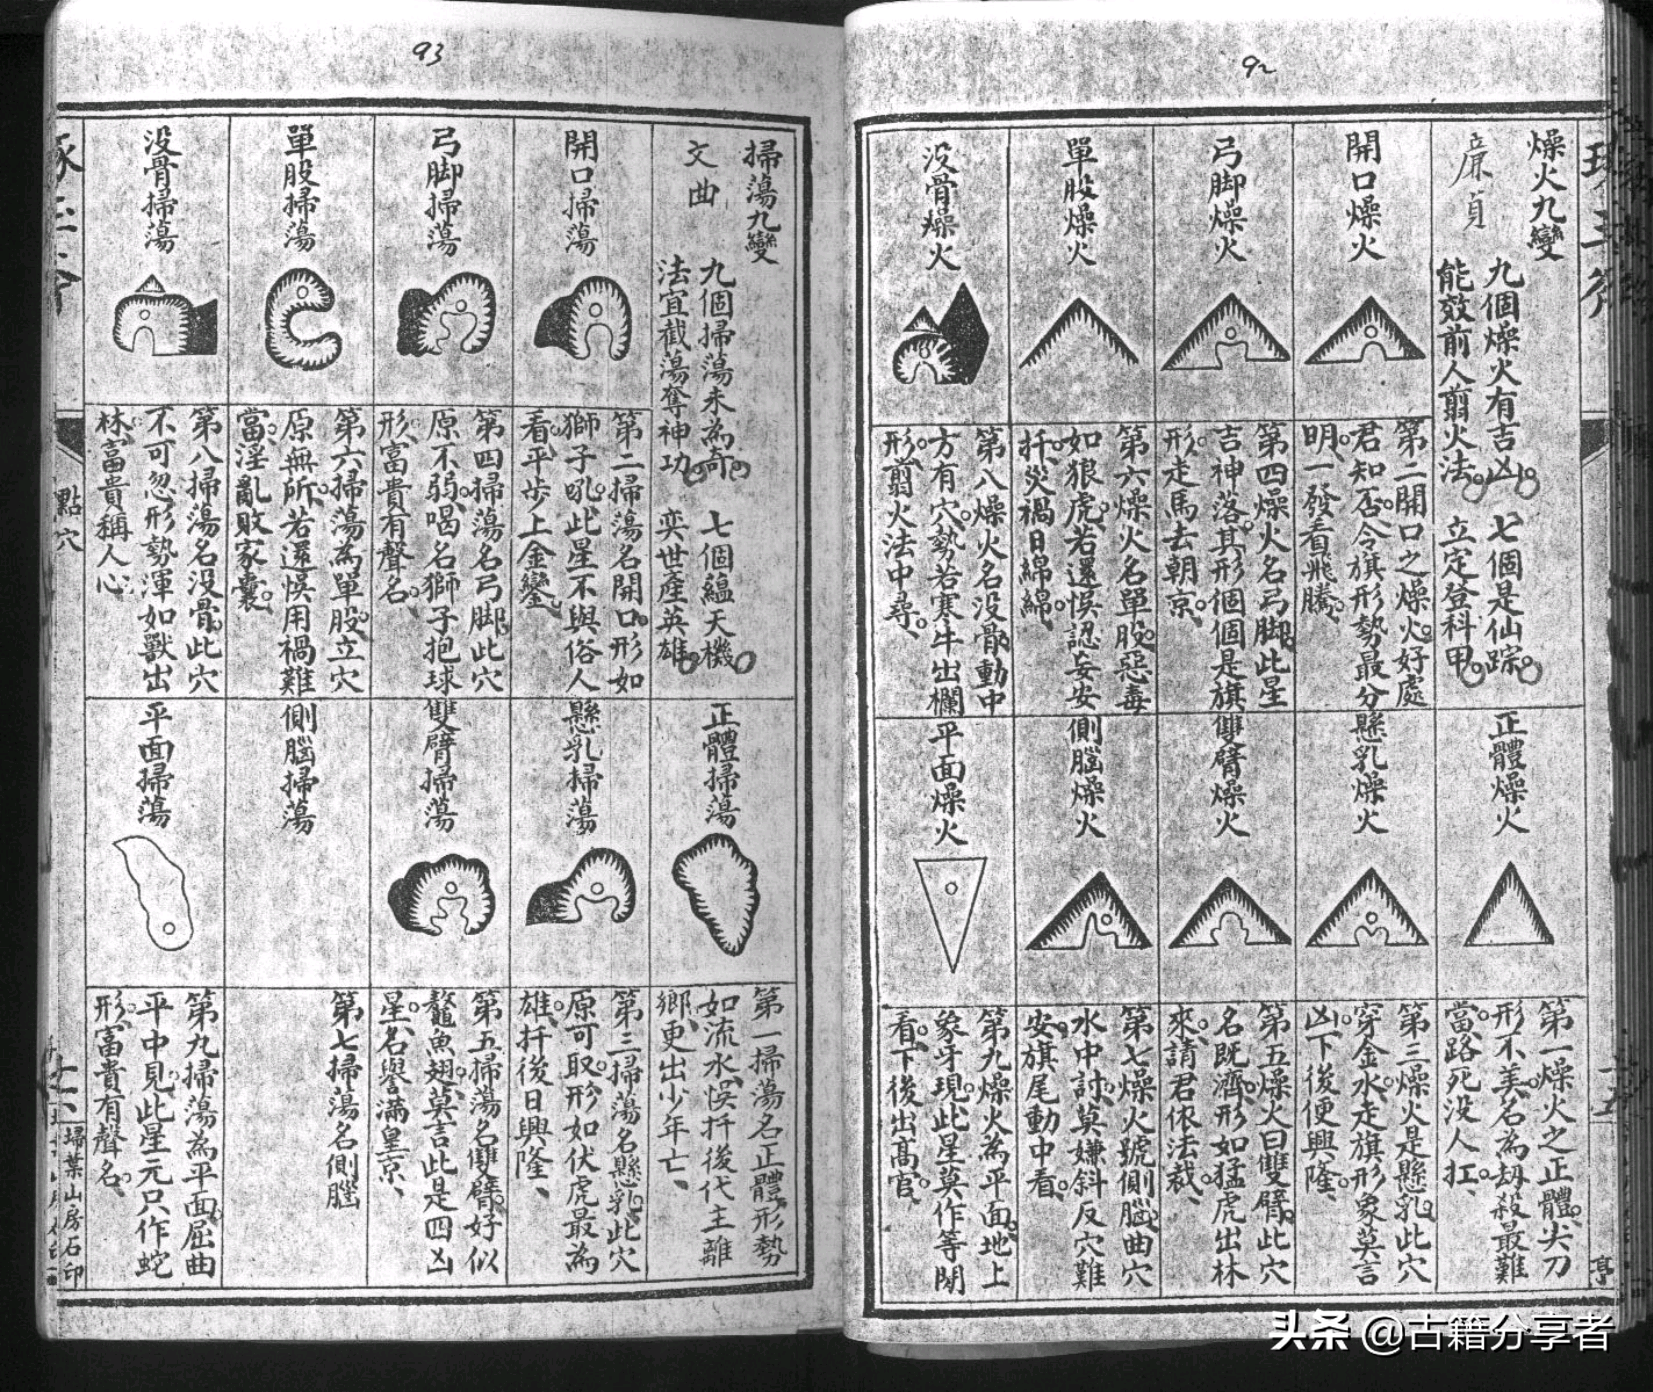 92
燥火九變
廉貞
九個燥火有吉凶 七個是仙踪
能效前人翦火法 立定登科甲
正體燥火
第一燥火之正體尖刀
形不美名為刼殺最難
當路死没人扛
開口燥火
第二開口之燥火好處
君知否令旗形勢最分
明一發看飛騰
懸乳燥火
第三燥火是懸乳此穴
穿金水走旗形象莫言
凶下後便興隆
弓脚燥火
第四燥火名弓脚此星
吉神落其形個個是旗
形走馬去朝京
雙臂燥火
第五燥火曰雙臂此穴
名既濟形如猛虎出林
來請君依法裁
單股燥火
第六燥火名單股惡毒
如狼虎若還悞認妄安
扦災禍日綿綿
側腦燥火
第七燥火號側腦曲穴
水中討莫嫌斜反穴難
安旗尾動中看
没骨燥火
第八燥火名没骨動中
方有穴勢若寒牛出欄
形翦火法中尋
平面燥火
第九燥火為平面地上
象牙現此星莫作等閒
看下後出高官
93
掃蕩九變
文曲
九個掃蕩未為奇 七個蘊天機
法宜截蕩奪神功 奕世產英雄
正體掃蕩
第一掃蕩名正體形勢
如流水悞扦後代主離
鄉更出少年亡
開口掃蕩
第二掃蕩名開口形如
獅子吼此星不與俗人
看平步上金鑾
懸乳掃蕩
第三掃蕩名懸乳此穴
原可取形如伏虎最為
雄扦後日興隆
弓脚掃蕩
第四掃蕩名弓脚此穴
原不弱喝名獅子抱球
形富貴有聲名
雙臂掃蕩
第五掃蕩名雙臂好似
鰲魚翅莫言此是四凶
星名譽滿皇京
單股掃蕩
第六掃蕩為單股立穴
原無所若還悞用禍難
當淫亂敗家囊
側腦掃蕩
第七掃蕩名側腦
没骨掃蕩
第八掃蕩名没骨此穴
不可忽形勢渾如獸出
林富貴稱人心
平面掃蕩
第九掃蕩為平面屈曲
平中見此星元只作蛇
形富貴有聲名
點穴
掃葉山房石印
头条 @古籍分享者